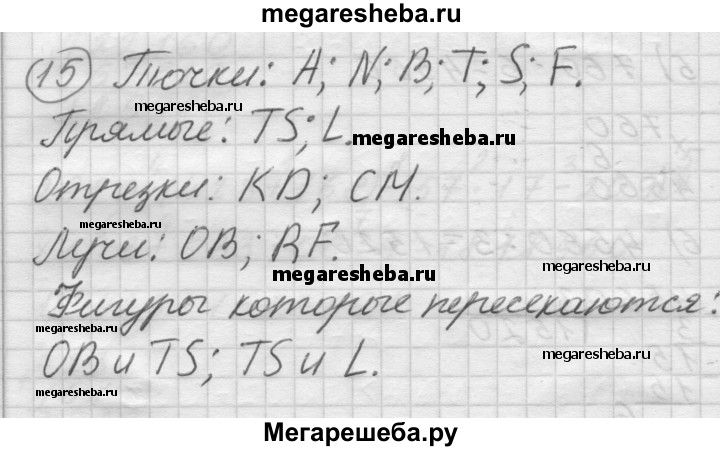 megaresheba.ru
15 Точки: A; N; B; T; S; F.
megaresheba.ru
Прямые: TS; L.
megaresheba.ru
Отрезки: KD; CM.
megaresheba.ru
Лучи: OB; RF.
megaresheba.ru
megaresheba.ru
Фигуры которые пересекаются:
megaresheba.ru
OB и TS; TS и L.
megaresheba.ru
megaresheba.ru
Мегарешеба.ру